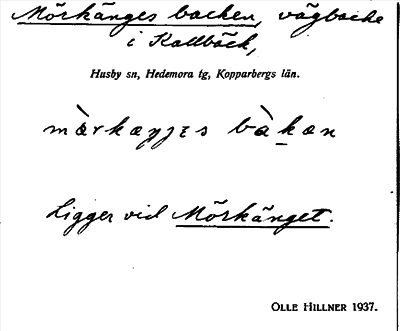 Mörkänges backen, vägbacke
i Kallbäck,
Husby sn, Hedemora tg, Kopparbergs län.
Ligger vid Mörkänget.
OLLE HILLNER 1937.